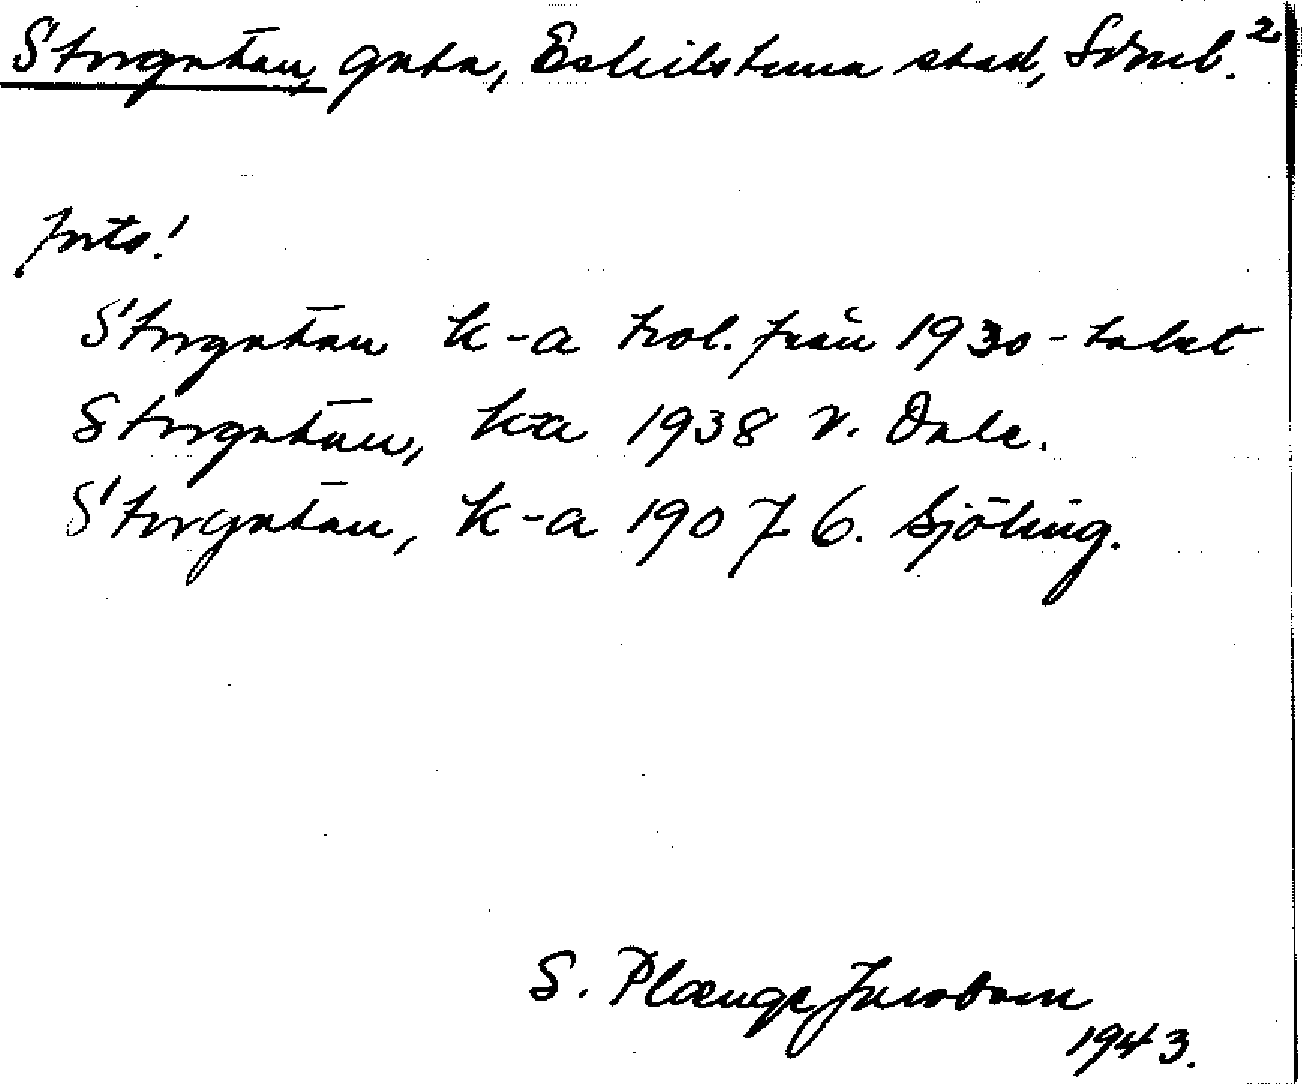 Storgatan, gata, Eskilstuna stad, Södml. 2
forts!
Storgatan k-a trol. från 1930-talet
Storgatan, k-a 1938 V. Dale.
Storgatan, k-a 1907 G. Sjöling.
S. Plænge Jacobson
1943.